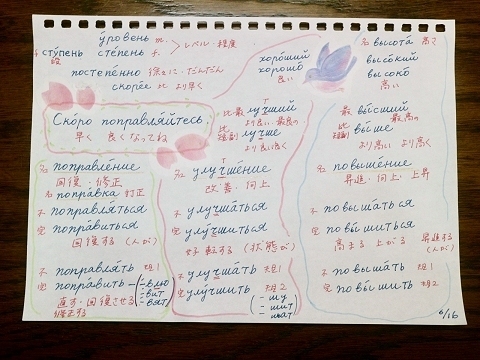 у́ровень m.
сту́пень сте́пень f. > レベル・程度
f. 段
постепе́нно 徐々に・だんだん
скоре́е 比 より早く
хоро́ший
хорошо́
良い
名 высота́ 高さ
высо́кий
высоко́
高い
Ско́ро поправля́йтесь.
早く 良くなってね
比最 лу́чший
より良い・最良の
比 лу́чше
より良く
最 вы́сший
最高の
比 вы́ше
より高い より高く
名 поправле́ние
回復・修正
名 попра́вка 訂正
不 поправля́ться
完 попра́виться
回復する (人が)
不 поправля́ть 規1
完 попра́вить
(-влю
-вит
-вят)
直す・回復させる
修正する
名 улучше́ние
改善・向上
不 улучша́ться
完 улу́чшиться
好転する (状態が)
不 улучша́ть 規1
完 улу́чшить 規2
(-шу
-шит
-шат)
名 повыше́ние
昇進・向上・上昇
不 повыша́ться
完 повы́ситься
高まる 上がる 昇進する
(人が)
不 повыша́ть 規1
完 повы́сить 規2
6/16